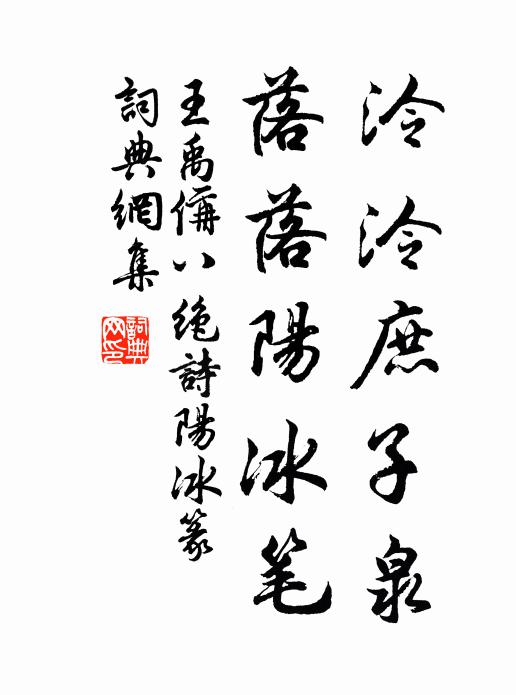 泠泠庶子泉
落落陽冰笔
王禹偁八絶詩陽冰篆
詞典網集
詞典网印